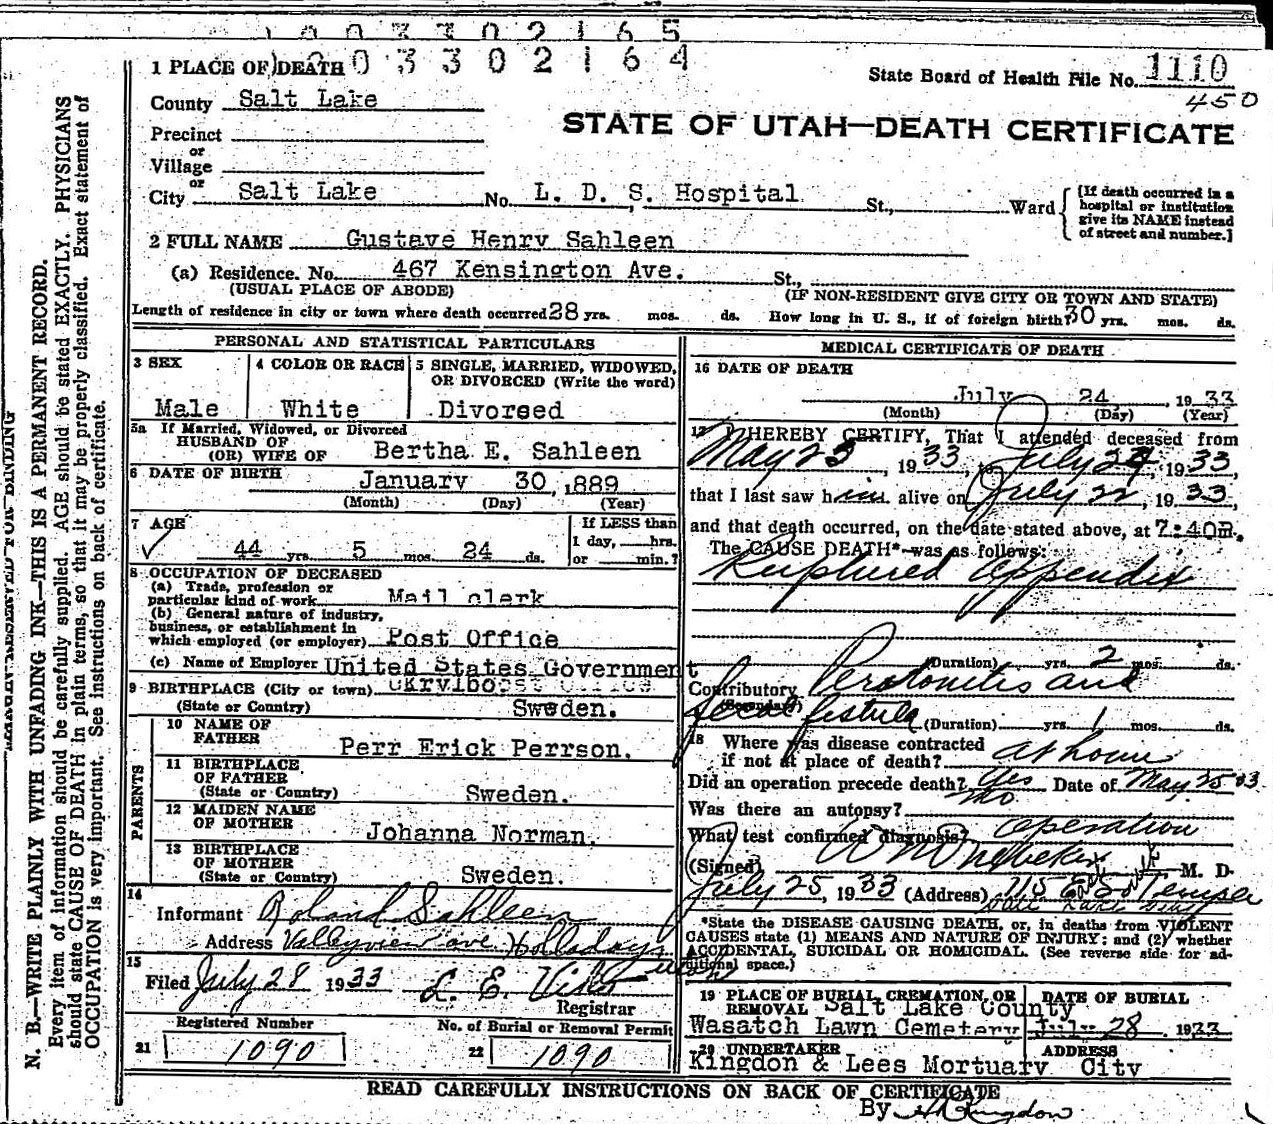 0 0 3 3 0 2 1 6 5
0 0 3 3 0 2 1 6 4
1 PLACE OF DEATH
State Board of Health File No. 1110
450
County Salt Lake
STATE OF UTAH—DEATH CERTIFICATE
Precinct
or
Village
or
City Salt Lake No. L. D. S. Hospital St., Ward
[If death occurred in a
hospital or institution
give its NAME instead
of street and number.]
2 FULL NAME Gustave Henry Sahleen
(a) Residence. No. 467 Kensington Ave. St.,
(USUAL PLACE OF ABODE) (IF NON-RESIDENT GIVE CITY OR TOWN AND STATE)
Length of residence in city or town where death occurred 28 yrs. mos. ds. How long in U. S., if of foreign birth? 30 yrs. mos. ds.
PERSONAL AND STATISTICAL PARTICULARS
3 SEX
Male
4 COLOR OR RACE
White
5 SINGLE, MARRIED, WIDOWED,
OR DIVORCED (Write the word)
Divorced
5a If Married, Widowed, or Divorced
HUSBAND OF
(OR) WIFE OF Bertha E. Sahleen
6 DATE OF BIRTH January 30, 1889
(Month) (Day) (Year)
7 AGE
44 yrs. 5 mos. 24 ds.
If LESS than
1 day, hrs.
or min.?
8 OCCUPATION OF DECEASED
(a) Trade, profession or
particular kind of work Mail clerk
(b) General nature of industry,
business, or establishment in
which employed (or employer) Post Office
(c) Name of Employer United States Government
9 BIRTHPLACE (City or town)
(State or Country) Sweden.
PARENTS
10 NAME OF
FATHER Perr Erick Perrson.
11 BIRTHPLACE
OF FATHER
(State or Country) Sweden.
12 MAIDEN NAME
OF MOTHER Johanna Norman.
13 BIRTHPLACE
OF MOTHER
(State or Country) Sweden.
14
Informant Roland Sahleen
Address Valleyview ave Holladay
15
Filed July 28 1933 L. E.
Registrar
Registered Number
21 1090
No. of Burial or Removal Permit
22 1090
MEDICAL CERTIFICATE OF DEATH
16 DATE OF DEATH
July 24, 1933
(Month) (Day) (Year)
17 I HEREBY CERTIFY, That I attended deceased from
May 23, 1933, to July 24, 1933,
that I last saw him alive on July 22, 1933,
and that death occurred, on the date stated above, at 7:40 m.
The CAUSE DEATH* was as follows:
Ruptured Appendix
(Duration) yrs. 2 mos. ds.
Contributory Peratonitis and
(Secondary)
fecal fistula (Duration) yrs. 1 mos. ds.
18 Where was disease contracted
if not at place of death? at home
Did an operation precede death? yes Date of May 25 33
Was there an autopsy? no
What test confirmed diagnosis? Operation
(Signed) M. D.
July 25, 1933 (Address) 715 East So Temple
Salt Lake City
*State the DISEASE CAUSING DEATH, or, in deaths from VIOLENT
CAUSES state (1) MEANS AND NATURE OF INJURY: and (2) whether
ACCIDENTAL, SUICIDAL OR HOMICIDAL. (See reverse side for ad-
ditional space.)
19 PLACE OF BURIAL, CREMATION, OR
REMOVAL Salt Lake County
Wasatch Lawn Cemetery
DATE OF BURIAL
July 28 1933
20 UNDERTAKER
Kingdon & Lees Mortuary
ADDRESS
City
READ CAREFULLY INSTRUCTIONS ON BACK OF CERTIFICATE
By Kingdon
MARGIN RESERVED FOR BINDING
N. B.—WRITE PLAINLY WITH UNFADING INK—THIS IS A PERMANENT RECORD.
Every item of information should be carefully supplied. AGE should be stated EXACTLY. PHYSICIANS
should state CAUSE OF DEATH in plain terms, so that it may be properly classified. Exact statement of
OCCUPATION is very important. See instructions on back of certificate.